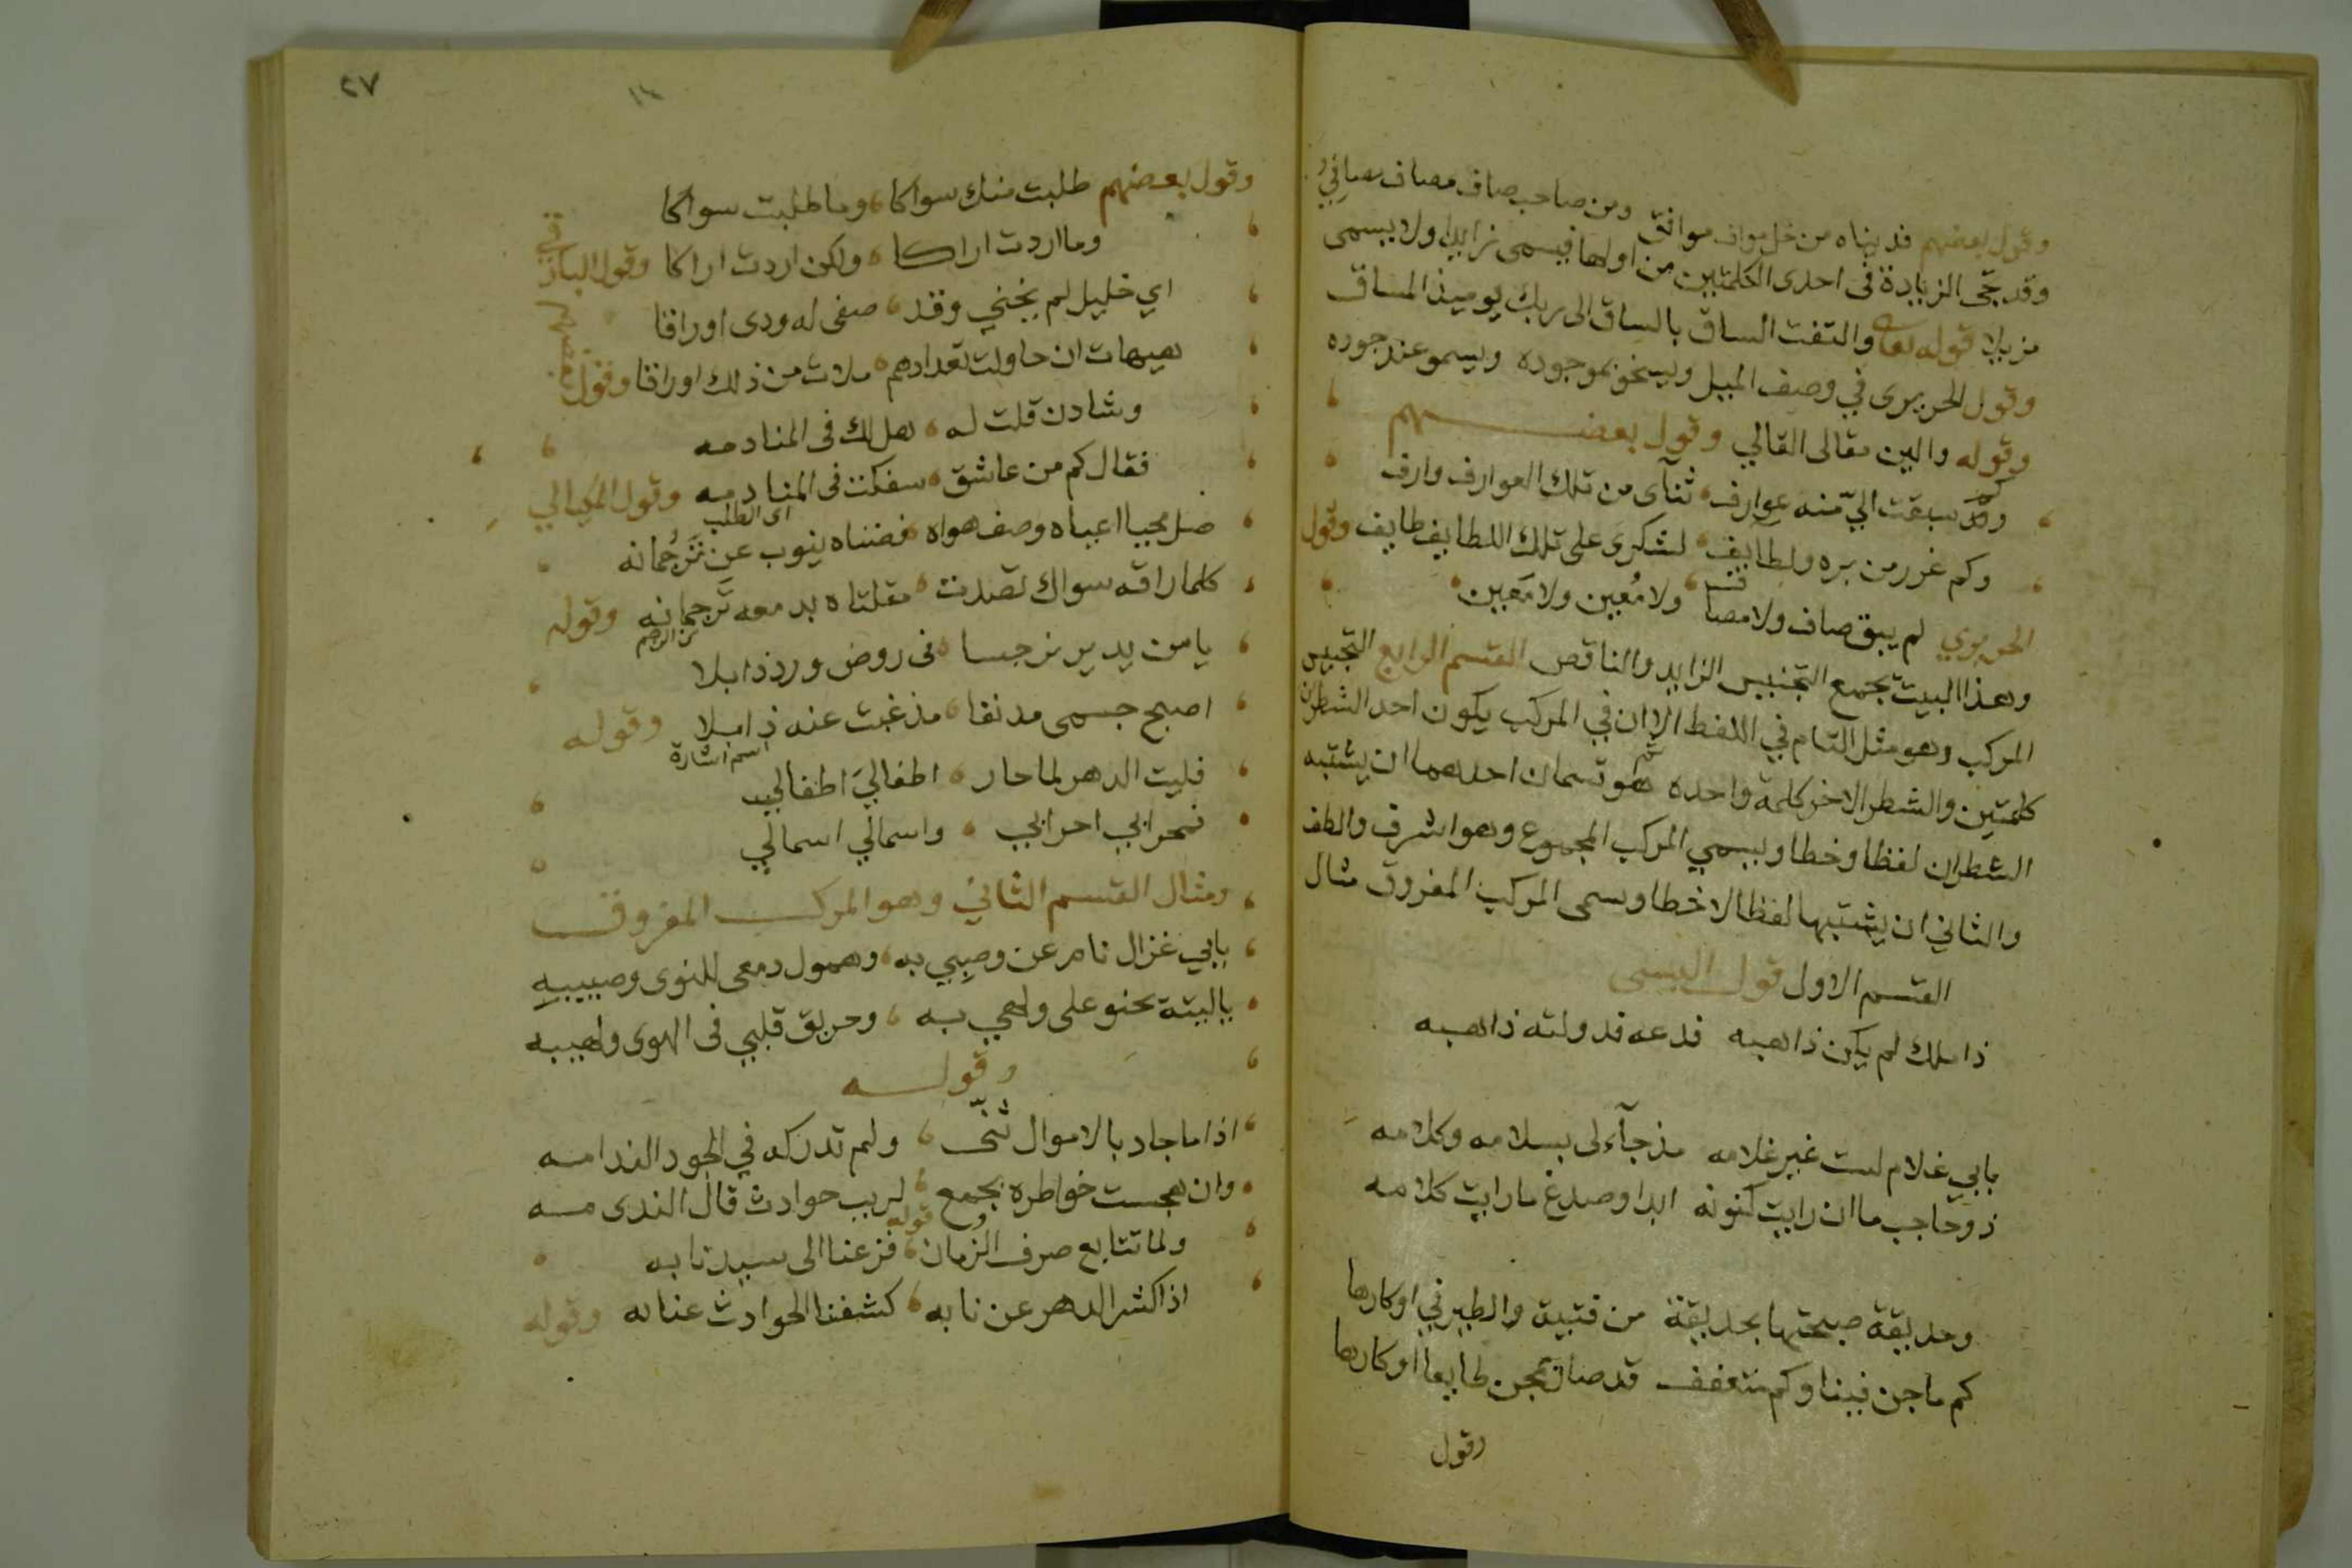 وقول بعضهم فديناه من خل مواف موافق ومن صاحب صاف مصاف مصافي
وقد تجى الزيادة فى احدى الكلمتين من اولها فيسمى زايدا ولا يسمى
مزيلا قوله تعا والتفت الساق بالساق الى ربك يوميذ المساق
وقول الحريرى في وصف الميل وليسخو بموجوده ويسمو عند جوده
وقوله والين مقالى القالي وقول بعضهم
وكم سبقت اليّ منه عوارف ثنآى من تلك العوارف وارف
وكم غرر من بره ولطايف لشكرى على تلك اللطايف طايف وقول
الحريري لم يبق صاف ولا مصاف ولا مُعين ولا مَعين
وهذا البيت تجمع التجنيس الزايد والناقص القسم الرابع التجنيس
المركب وهو مثل التام في اللفظ الا ان في المركب يكون احد الشطرين
كلمتين والشطر الاخر كلمة واحده ثم هو قسمان احدهما ان يشتبه
الشطران لفظا وخطا ويسمي المركب المجموع وهو اشرف والطف
والثاني ان يشتبها لفظا لا خطا وسمى المركب المفروق مثال
القسم الاول قول البستى
ذا ملك لم يكن ذا هبه فدعه فدولته ذاهبه
بابي غلام لست غير غلامه مذ جآء لى بسلامه وكلامه
ذو حاجب ما ان رايت كنونه ابدا وصدغ ما رايت كلامه
وحديقة صبحتها بحديقة من فتية والطير في اوكارها
كم ماجن فينا وكم متعفف قد صان مجن طايعا اوكارها
وقول
٢٧
١٤
وقول بعضهم طلبت منك سواكا وما طلبت سواكا
وما اردت اراكا ولكن اردت اراكا وقول
اي خليل لم يخني وقد صفى له ودى اوراقا
هيهات ان حاولت تعدادهم ملات من ذلك اوراقا وقول
وشادن قلت له هل لك فى المنادمه
فقال كم من عاشق سفكت فى المنا دمه وقول الميكالي
اى الطلب
صل محبا اعياه وصف هواه فضناه ينوب عن تَرجُمانه
كلما راقه سواك تصدت مقلتاه بدمعه تَرجمانه وقوله
من الرجم
يا من يدير نرجسا فى روض ورد ذابلا
اصبح جسمى مدنفا مذ غبت عنه ذا بلا وقوله
اسم اشارة
فليت الدهر لما حار اطفالي اطفالي
فحرابي احرابي واسمالي اسمالي
ومثال القسم الثاني وهو المركب المفروق
بابي غزال نام عن وصبي به وهمول دمعى للنوى وصبيبه
ياليته يحنو على ولهي به وحريق قلبي فى الهوى ولهيبه
وقوله
اذا ما جاد بالاموال ثنّى ولم تدركه في الجود الندامه
وان هجست خواطره بجمع لريب حوادث قال الندى مه
قوله
ولما تتابع صرف الزمان فزعنا الى سيد نابه
اذا كشر الدهر عن نابه كشفنا الحوادث عنا به وقوله